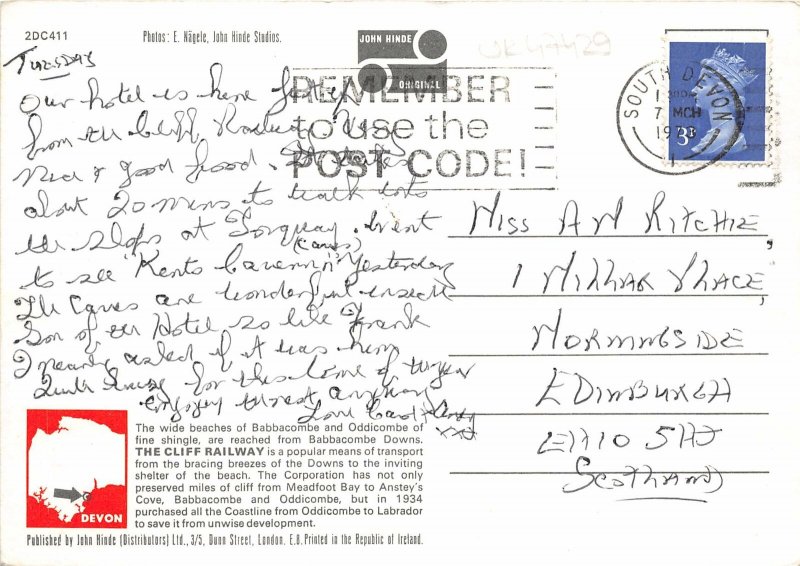 2DC411
Photos: E. Nägele, John Hinde Studios.
JOHN HINDE
ORIGINAL
UK47429
REMEMBER
to use the
POST CODE!
SOUTH DEVON
7 MCH
3P
Tuesday
Our hotel is here
from the Cliff Railway. Very
nice & good food.
about 20 mins to walk into
the shops at Torquay. Went
(caves)
to see "Kents Cavern" yesterday
The Caves are wonderful inside
Son of our Hotel so like Frank
I nearly asked if it was him
Quite for this time of the year
enjoy the rest anyway
Love
Miss A M Ritchie,
1 Millar Place,
Morningside
Edinburgh
EH10 5HJ
Scotland
The wide beaches of Babbacombe and Oddicombe of
fine shingle, are reached from Babbacombe Downs.
THE CLIFF RAILWAY is a popular means of transport
from the bracing breezes of the Downs to the inviting
shelter of the beach. The Corporation has not only
preserved miles of cliff from Meadfoot Bay to Anstey's
Cove, Babbacombe and Oddicombe, but in 1934
purchased all the Coastline from Oddicombe to Labrador
to save it from unwise development.
DEVON
Published by John Hinde (Distributors) Ltd., 3/5, Dunn Street, London, E.8. Printed in the Republic of Ireland.